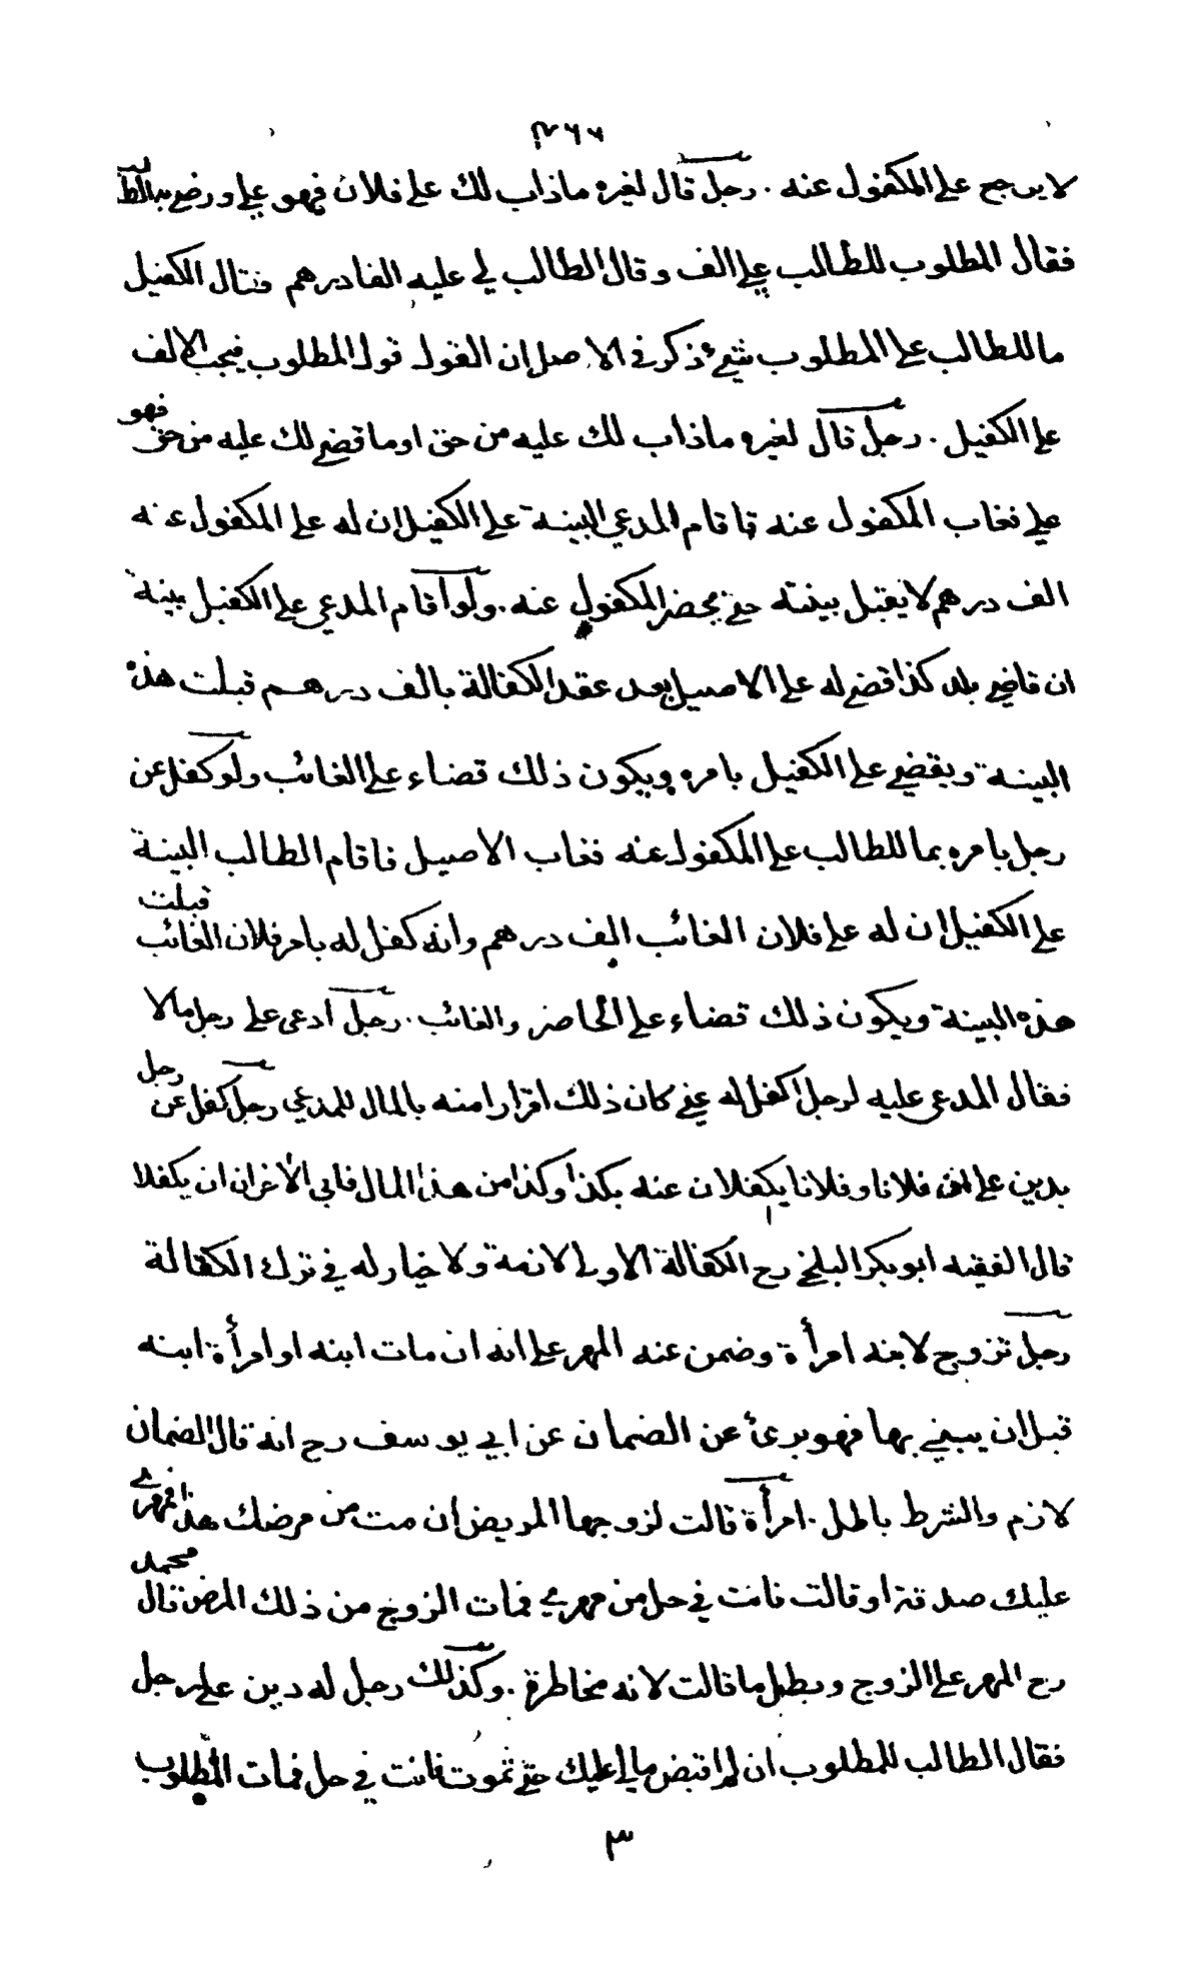 ٣٦٦
لا يرجع على المكفول عنه . رجل قال لغيره ماذاب لك على فلان فهو علي ورضي به الطالب
فقال المطلوب للطالب علي الف وقال الطالب لي عليه الفا درهم فقال الكفيل
ما للطالب على المطلوب شيئ ذكر في الاصل ان القول قول المطلوب فيجب الالف
على الكفيل . رجل قال لغيره ماذاب لك عليه من حق او ما قضي لك عليه من حق فهو
علي فغاب المكفول عنه فاقام المدعي البينة على الكفيل ان له على المكفول عنه
الف درهم لا يقبل بينته حتى يحضر المكفول عنه . ولو اقام المدعي على الكفيل بينة
ان قاضي بلد كذا قضى له على الاصيل بعد عقد الكفالة بالف درهم قبلت هذه
البينة ويقضي على الكفيل بامره ويكون ذلك قضاء على الغائب ولو كفل عن
رجل بامره بما للطالب على المكفول عنه فغاب الاصيل فاقام الطالب البينة
على الكفيل ان له على فلان الغائب الف درهم وانه كفل له بامر فلان الغائب قبلت
هذه البينة ويكون ذلك قضاء على الحاضر والغائب . رجل ادعى على رجل مالا
فقال المدعى عليه لرجل اكفل له عني كان ذلك اقرارا منه بالمال للمدعي رجل كفل عن رجل
بدين على ان فلانا وفلانا يكفلان عنه بكذا وكذا من هذا المال فابى الآخران ان يكفلا
قال الفقيه ابوبكر البلخي رح الكفالة الاولى لازمة ولا خيار له في ترك الكفالة
رجل تزوج لابنه امرأة وضمن عنه المهر على انه ان مات ابنه او امرأة ابنه
قبل ان يبني بها فهو برئ عن الضمان عن ابي يوسف رح انه قال الضمان
لازم والشرط باطل . امرأة قالت لزوجها المريض ان مت من مرضك هذا فمهري
عليك صدقة او قالت فانت في حل من مهري فمات الزوج من ذلك المرض قال محمد
رح المهر على الزوج وبطل ما قالت لانه مخاطرة . وكذلك رجل له دين على رجل
فقال الطالب للمطلوب ان لم اقبض مالي عليك حتى تموت فانت في حل فمات المطلوب
٣